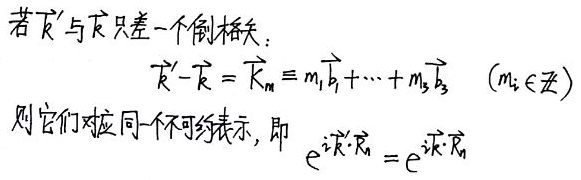 若 $\vec{k}'$ 与 $\vec{k}$ 只差一个倒格矢：
$\vec{k}' - \vec{k} = \vec{K}_m \equiv m_1\vec{b}_1 + \cdots + m_3\vec{b}_3 \quad (m_i \in \mathbb{Z})$
则它们对应同一个不可约表示，即 $e^{i\vec{k}'\cdot\vec{R}_n} = e^{i\vec{k}\cdot\vec{R}_n}$